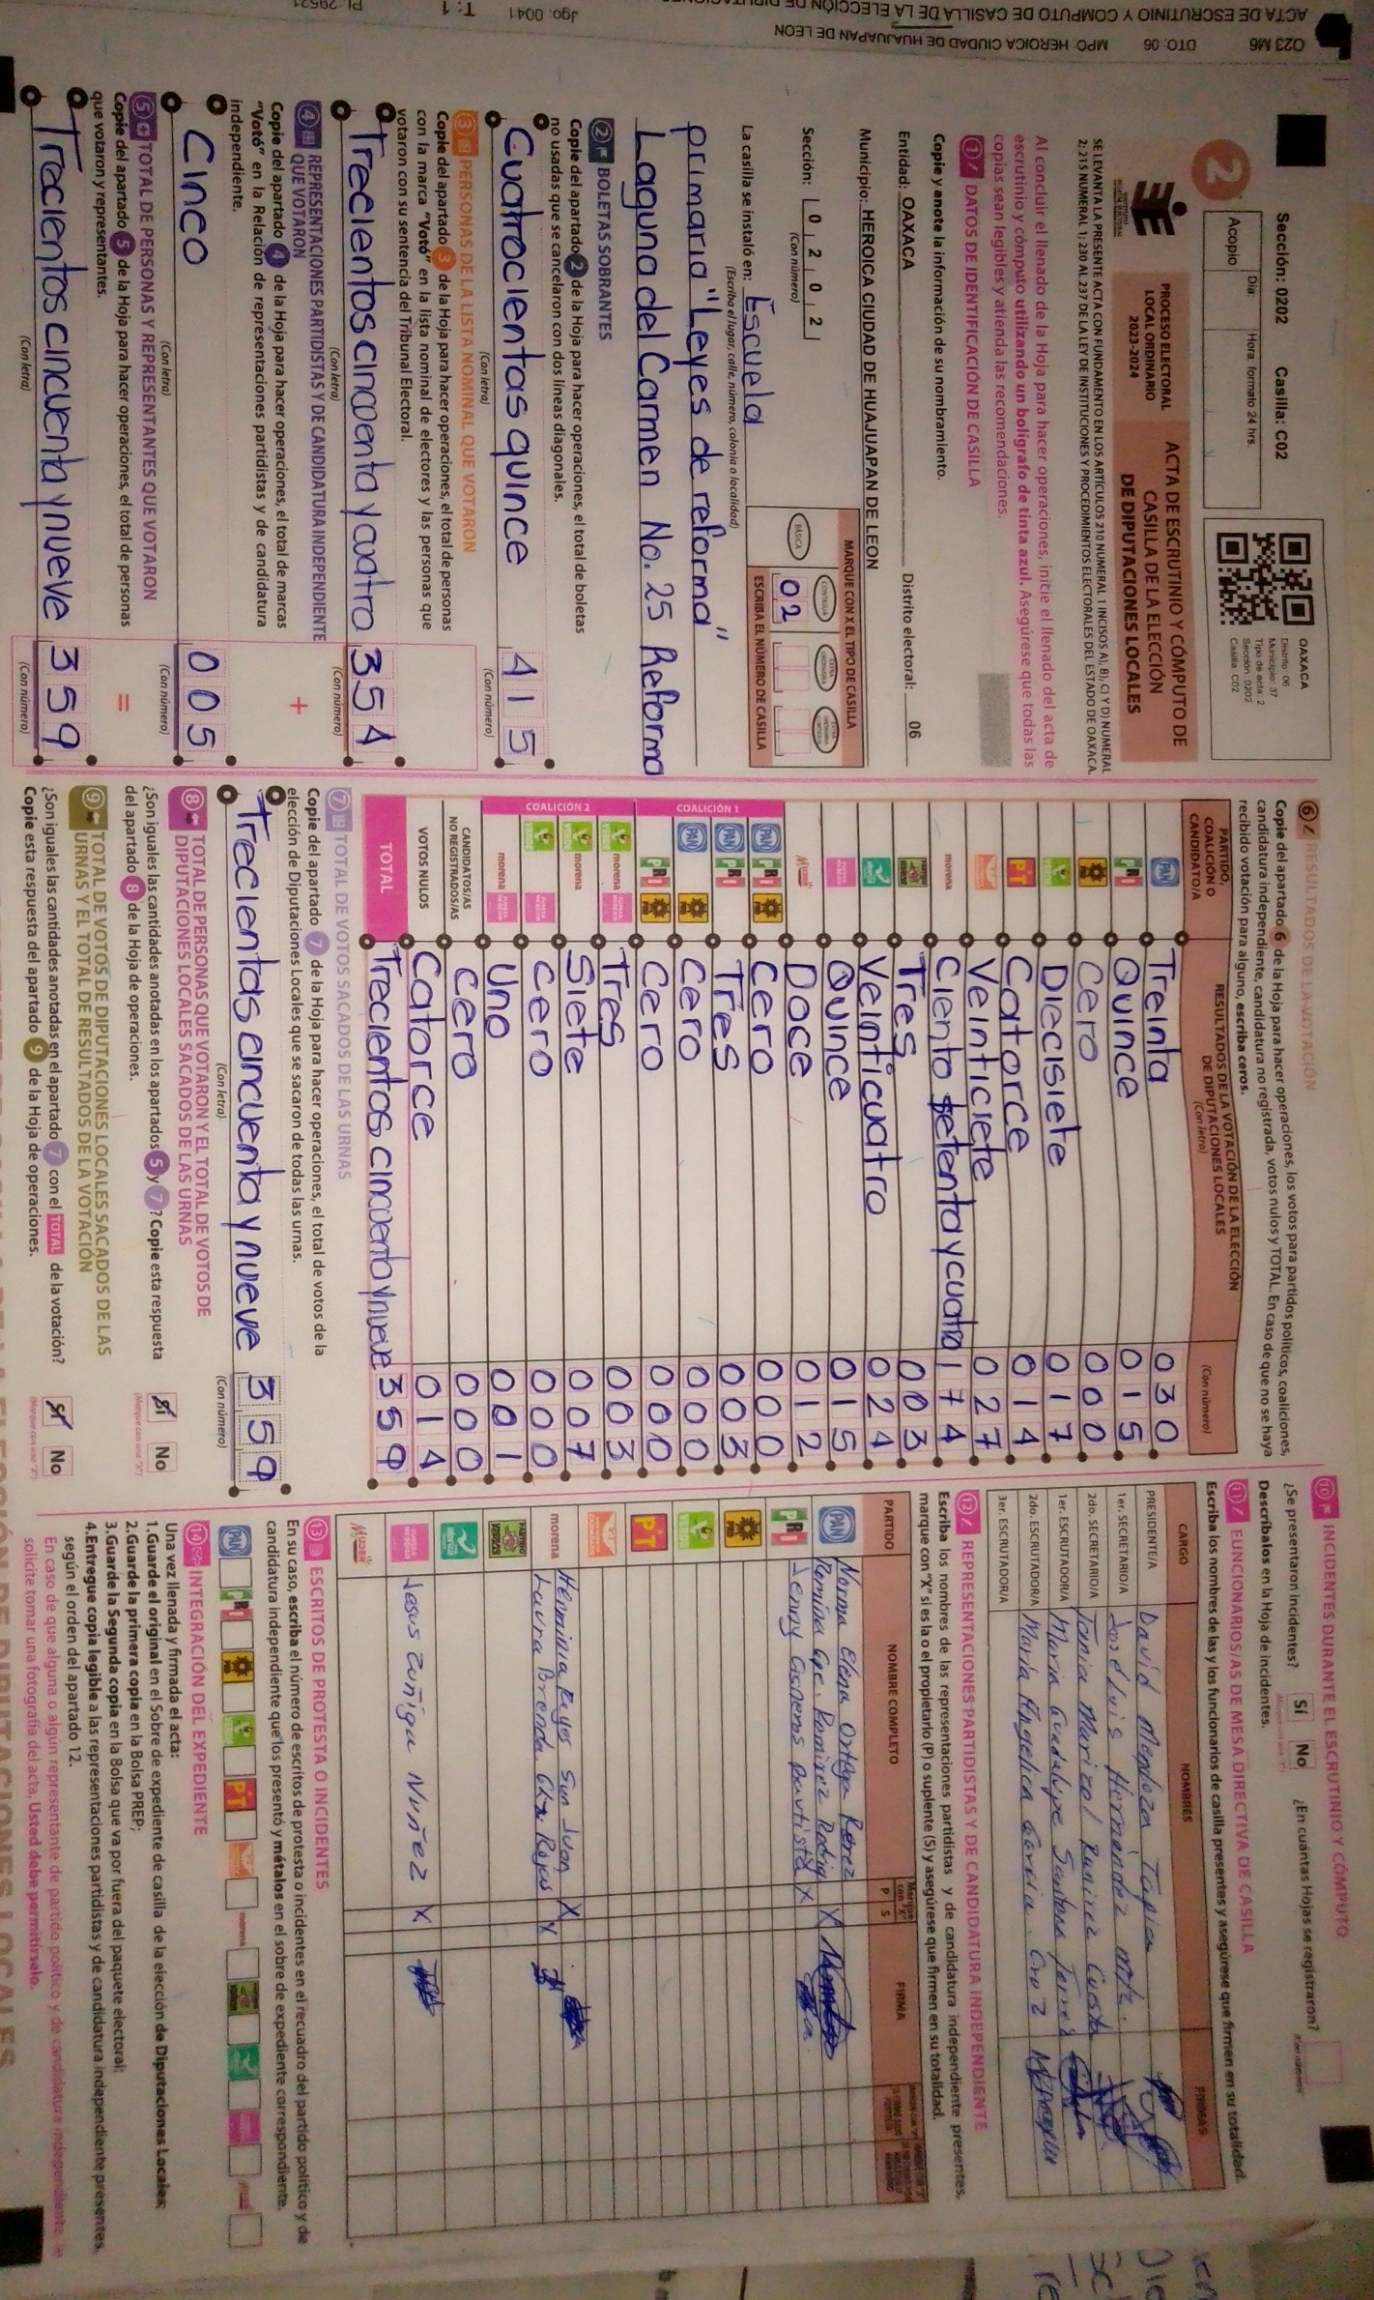 Sección: 0202 Casilla: C02
2
Acopio
Día:
Hora: formato 24 hrs.
OAXACA
Distrito: 06
Municipio: 37
Tipo de acta: 2
Sección: 0202
Casilla: C02
PROCESO ELECTORAL
LOCAL ORDINARIO
2023-2024
ACTA DE ESCRUTINIO Y CÓMPUTO DE
CASILLA DE LA ELECCIÓN
DE DIPUTACIONES LOCALES
SE LEVANTA LA PRESENTE ACTA CON FUNDAMENTO EN LOS ARTÍCULOS 210 NUMERAL 1 INCISOS A), B), C) Y D) NUMERAL
2; 215 NUMERAL 1; 230 AL 237 DE LA LEY DE INSTITUCIONES Y PROCEDIMIENTOS ELECTORALES DEL ESTADO DE OAXACA.
Al concluir el llenado de la Hoja para hacer operaciones, inicie el llenado del acta de
escrutinio y cómputo utilizando un bolígrafo de tinta azul. Asegúrese que todas las
copias sean legibles y atienda las recomendaciones.
1 DATOS DE IDENTIFICACIÓN DE CASILLA
Copie y anote la información de su nombramiento.
Entidad: OAXACA Distrito electoral: 06
Municipio: HEROICA CIUDAD DE HUAJUAPAN DE LEON
Sección: 0 2 0 2
(Con número)
MARQUE CON X EL TIPO DE CASILLA
BÁSICA
CONTIGUA
02
ESCRIBA EL NÚMERO DE CASILLA
La casilla se instaló en: Escuela
(Escriba el lugar, calle, número, colonia o localidad)
primaria "Leyes de reforma"
Laguna del Carmen No. 25 Reforma
2 BOLETAS SOBRANTES
Copie del apartado 2 de la Hoja para hacer operaciones, el total de boletas
no usadas que se cancelaron con dos líneas diagonales.
Cuatrocientas quince 415
(Con letra) (Con número)
3 PERSONAS DE LA LISTA NOMINAL QUE VOTARON
Copie del apartado 3 de la Hoja para hacer operaciones, el total de personas
con la marca "Votó" en la lista nominal de electores y las personas que
votaron con su sentencia del Tribunal Electoral.
Trecientos cincuenta y cuatro 354
(Con letra) (Con número)
4 REPRESENTACIONES PARTIDISTAS Y DE CANDIDATURA INDEPENDIENTE
QUE VOTARON
Copie del apartado 4 de la Hoja para hacer operaciones, el total de marcas
"Votó" en la Relación de representaciones partidistas y de candidatura
independiente.
+
Cinco 005
(Con letra) (Con número)
5 TOTAL DE PERSONAS Y REPRESENTANTES QUE VOTARON
Copie del apartado 5 de la Hoja para hacer operaciones, el total de personas
que votaron y representantes.
=
Trecientos cincuenta y nueve 359
(Con letra) (Con número)
6 RESULTADOS DE LA VOTACIÓN
Copie del apartado 6 de la Hoja para hacer operaciones, los votos para partidos políticos, coaliciones,
candidatura independiente, candidatura no registrada, votos nulos y TOTAL. En caso de que no se haya
recibido votación para alguno, escriba ceros.
PARTIDO,
COALICIÓN O
CANDIDATO/A
RESULTADOS DE LA VOTACIÓN DE LA ELECCIÓN
DE DIPUTACIONES LOCALES
(Con letra)
(Con número)
PAN Treinta 030
PRI Quince 015
PRD Cero 000
VERDE Diecisiete 017
PT Catorce 014
Veinticiete 027
morena Ciento setenta y cuatro 174
Tres 003
Veinticuatro 024
Quince 015
MUJER Doce 012
COALICIÓN 1
PAN PRI PRD Cero 000
PAN PRI Tres 003
PAN PRD Cero 000
PRI PRD Cero 000
COALICIÓN 2
VERDE morena Tres 003
VERDE morena Siete 007
VERDE Cero 000
morena Uno 001
CANDIDATOS/AS
NO REGISTRADOS/AS Cero 000
VOTOS NULOS Catorce 014
TOTAL Trecientos cincuenta y nueve 359
7 TOTAL DE VOTOS SACADOS DE LAS URNAS
Copie del apartado 7 de la Hoja para hacer operaciones, el total de votos de la
elección de Diputaciones Locales que se sacaron de todas las urnas.
Trecientas cincuenta y nueve 359
(Con letra) (Con número)
8 TOTAL DE PERSONAS QUE VOTARON Y EL TOTAL DE VOTOS DE
DIPUTACIONES LOCALES SACADOS DE LAS URNAS
¿Son iguales las cantidades anotadas en los apartados 5 y 7? Copie esta respuesta
del apartado 8 de la Hoja de operaciones.
Sí No
9 TOTAL DE VOTOS DE DIPUTACIONES LOCALES SACADOS DE LAS
URNAS Y EL TOTAL DE RESULTADOS DE LA VOTACIÓN
¿Son iguales las cantidades anotadas en el apartado 7 con el TOTAL de la votación?
Copie esta respuesta del apartado 9 de la Hoja de operaciones.
Sí No
10 INCIDENTES DURANTE EL ESCRUTINIO Y CÓMPUTO
¿Se presentaron incidentes? Sí No ¿En cuántas Hojas se registraron?
Descríbalos en la Hoja de incidentes.
11 FUNCIONARIOS/AS DE MESA DIRECTIVA DE CASILLA
Escriba los nombres de las y los funcionarios de casilla presentes y asegúrese que firmen en su totalidad.
CARGO NOMBRES FIRMAS
PRESIDENTE/A David Mendoza Tapia
1er. SECRETARIO/A José Luis Hernández
2do. SECRETARIO/A Tania Marizol Ramirez Cuesta
1er. ESCRUTADOR/A Maria Guadalupe Santana
2do. ESCRUTADOR/A Maria Angelica Garcia Cruz
3er. ESCRUTADOR/A
12 REPRESENTACIONES PARTIDISTAS Y DE CANDIDATURA INDEPENDIENTE
Escriba los nombres de las representaciones partidistas y de candidatura independiente presentes,
marque con "X" si es la o el propietario (P) o suplente (S) y asegúrese que firmen en su totalidad.
PARTIDO NOMBRE COMPLETO P S FIRMA
PAN Norma Elena Ortega Perez
X
PRI Jenny Cisneros Bautista X
PRD
VERDE
PT
morena Herminia Reyes San Juan X
Laura Brenda Rojas X
Jesus Zuñiga Nuñez X
MUJER
13 ESCRITOS DE PROTESTA O INCIDENTES
En su caso, escriba el número de escritos de protesta o incidentes en el recuadro del partido político y de
candidatura independiente que los presentó y métalos en el sobre de expediente correspondiente.
PAN PRI PRD VERDE PT morena
14 INTEGRACIÓN DEL EXPEDIENTE
Una vez llenada y firmada el acta:
1.Guarde el original en el Sobre de expediente de casilla de la elección de Diputaciones Locales;
2.Guarde la primera copia en la Bolsa PREP;
3.Guarde la Segunda copia en la Bolsa que va por fuera del paquete electoral;
4.Entregue copia legible a las representaciones partidistas y de candidatura independiente presentes,
según el orden del apartado 12.
En caso de que alguna o algún representante de partido político y de candidatura independiente le
solicite tomar una fotografía del acta. Usted debe permitírselo.
O23 M6 DTO: 06 MPO: HEROICA CIUDAD DE HUAJUAPAN DE LEON
Jgo: 0041 T: 1